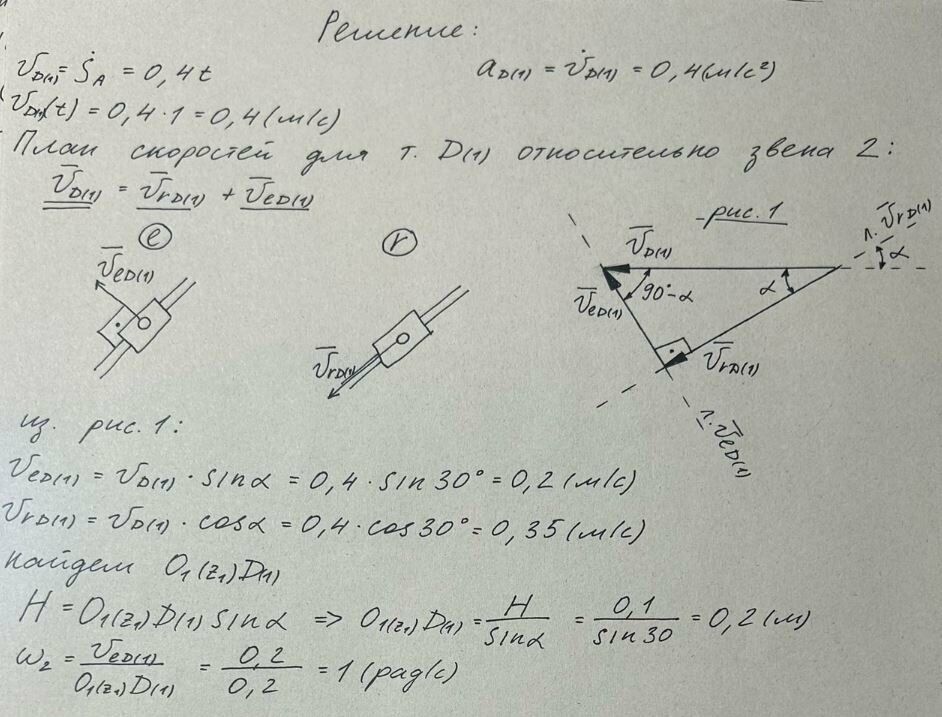 Решение:
υ_D(1) = Ṡ_A = 0,4t
a_D(1) = υ̇_D(1) = 0,4 (м/с²)
υ_D(1)(t) = 0,4·1 = 0,4 (м/с)
План скоростей для т. D(1) относительно звена 2:
ῡ_D(1) = ῡ_rD(1) + ῡ_eD(1)
e
r
рис. 1
ῡ_eD(1)
ῡ_rD(1)
ῡ_D(1)
л. ῡ_rD(1)
α
ῡ_eD(1)
90°-α
α
ῡ_rD(1)
л. ῡ_eD(1)
из. рис. 1:
υ_eD(1) = υ_D(1) · sinα = 0,4 · sin 30° = 0,2 (м/с)
υ_rD(1) = υ_D(1) · cosα = 0,4 · cos 30° = 0,35 (м/с)
найдем O₁(z₁)D(1)
H = O₁(z₁)D(1) sinα => O₁(z₁)D(1) = H/sinα = 0,1/sin30 = 0,2 (м)
ω₂ = υ_eD(1)/O₁(z₁)D(1) = 0,2/0,2 = 1 (рад/с)